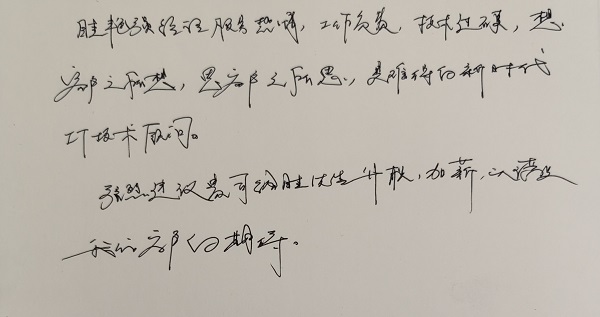 服务热情,工作负责,技术过硬,想
客户之所想,思客户之所思,是难得的新时代
IT技术顾问。
强烈建议贵司给胜先生升职,加薪,以满足
我们客户的期待。